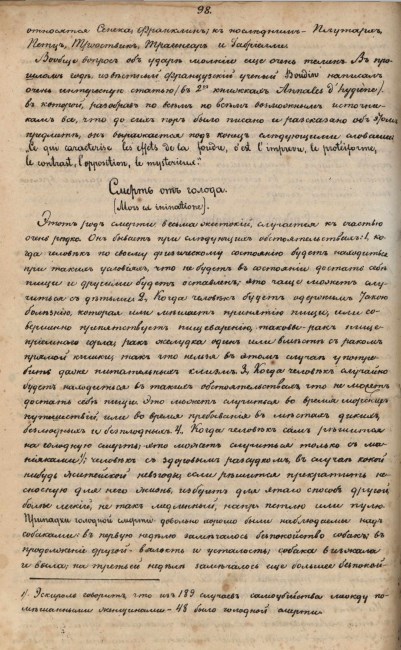 98.
относятся Сенека Франклинъ; къ послѣднимъ - Плутархъ
Петцъ, Троствикъ, Тралешаръ и Габріалли
Вообще вопросъ объ ударѣ молніи еще очень теменъ. Въ про-
шломъ году извѣстный французскій ученый Boudin написалъ
очень интересную статью (въ 2хъ книжкахъ Annales d'hygiène)
въ которой, разобравъ по всѣмъ по всѣмъ возможнымъ источни-
камъ все, что до сихъ поръ было писано и разсказано объ этомъ
предметѣ, онъ выражается подъ конецъ слѣдующими словами
"Ce qui caractérise les effets de la foudre, c'est l'imprevu, le protéiforme,
le contrast, l'opposition, le mysterieux."
Смерть отъ голода.
(Mors ex inanitione).
Этотъ родъ смерти весьма жестокій, случается къ счастью
очень рѣдко. Онъ бываетъ при слѣдующихъ обстоятельствахъ: 1, ко-
гда человѣкъ по своему физическому состоянію будетъ находиться
при такихъ условіяхъ, что не будетъ въ состояніи достать себѣ
пищи и другими будетъ оставленъ; это чаще можетъ слу-
читься съ дѣтьми 2, Когда человѣкъ будетъ одержимъ такою
болѣзнію, которая или мѣшаетъ принятію пищи, или со-
вершенно препятствуетъ пищеваренію, таковы: ракъ пище-
пріемнаго горла, ракъ желудка одинъ или вмѣстѣ съ ракомъ
прямой кишки; такъ что нельзя въ этомъ случаѣ употре-
бить даже питательныхъ клизмъ 3, Когда человѣкъ случайно
будетъ находиться въ такихъ обстоятельствахъ, что не можетъ
достать себѣ пищи. Это можетъ случиться во время морскихъ
путешествій, или во время пребыванія въ мѣстахъ дикихъ,
безлюдныхъ и безплодныхъ 4. Когда человѣкъ самъ рѣшится
на голодную смерть; это можетъ случиться только съ ма-
ніяками¹); человѣкъ съ здоровымъ разсудкомъ, въ случаѣ какой
нибудь житейской невзгоды, если рѣшится прекратить не-
сносную для него жизнь, изберетъ для этаго способъ другой
болѣе легкій, не такъ медленный, напр. петлю или пулю.
Припадки голодной смерти довольно хорошо были наблюдаемы надъ
собаками: въ первую недѣлю замѣчалось безпокойство собакъ; въ
продолженіе другой - вялость и усталость; собака визжала
и выла; на третьей недѣлѣ замѣчалось еще большее безпокой-
¹) Эскироль говоритъ что изъ 189 случаевъ самоубійства между по-
мѣшанными женщинами - 48 было голодной смерти.